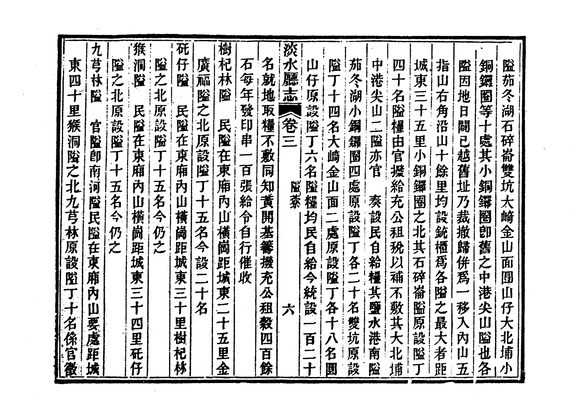 隘茄冬湖石碎崙雙坑大崎金山面圓山仔大北埔小
銅鑼圈等十處其小銅鑼圈卽舊之中港尖山隘也各
隘因地日闢已越舊址乃裁撤歸併爲一移入內山五
指山右角沿山十餘里均設銃櫃爲各隘之最大者距
城東三十五里小銅鑼圈之北其石碎崙隘原設隘丁
四十名隘糧由官撥給充公租稅以補不敷其大北埔
中港尖山二隘亦官 奏設民自給糧其鹽水港南隘
茄冬湖小銅鑼圈四處原設隘丁各二十名雙坑原設
隘丁十四名大崎金山面二處原設隘丁各十八名圓
山仔原設隘丁六名隘糧均民自給今統設一百二十
淡水廳志 卷三 隘寮 六
名就地取糧不敷同知黃開基籌撥充公租穀四百餘
石每年發印串一百張給令自行催收
樹杞林隘 民隘在東廂內山橫崗距城東二十五里金
廣福隘之北原設隘丁十五名今設二十名
矺仔隘 民隘在東廂內山橫崗距城東三十里樹杞林
隘之北原設隘丁十五名今仍之
猴洞隘 民隘在東廂內山橫崗距城東三十四里矺仔
隘之北原設隘丁十五名今仍之
九芎林隘 官隘卽南河隘民隘在東廂內山要處距城
東四十里猴洞隘之北九芎林原設隘丁十名係官徵